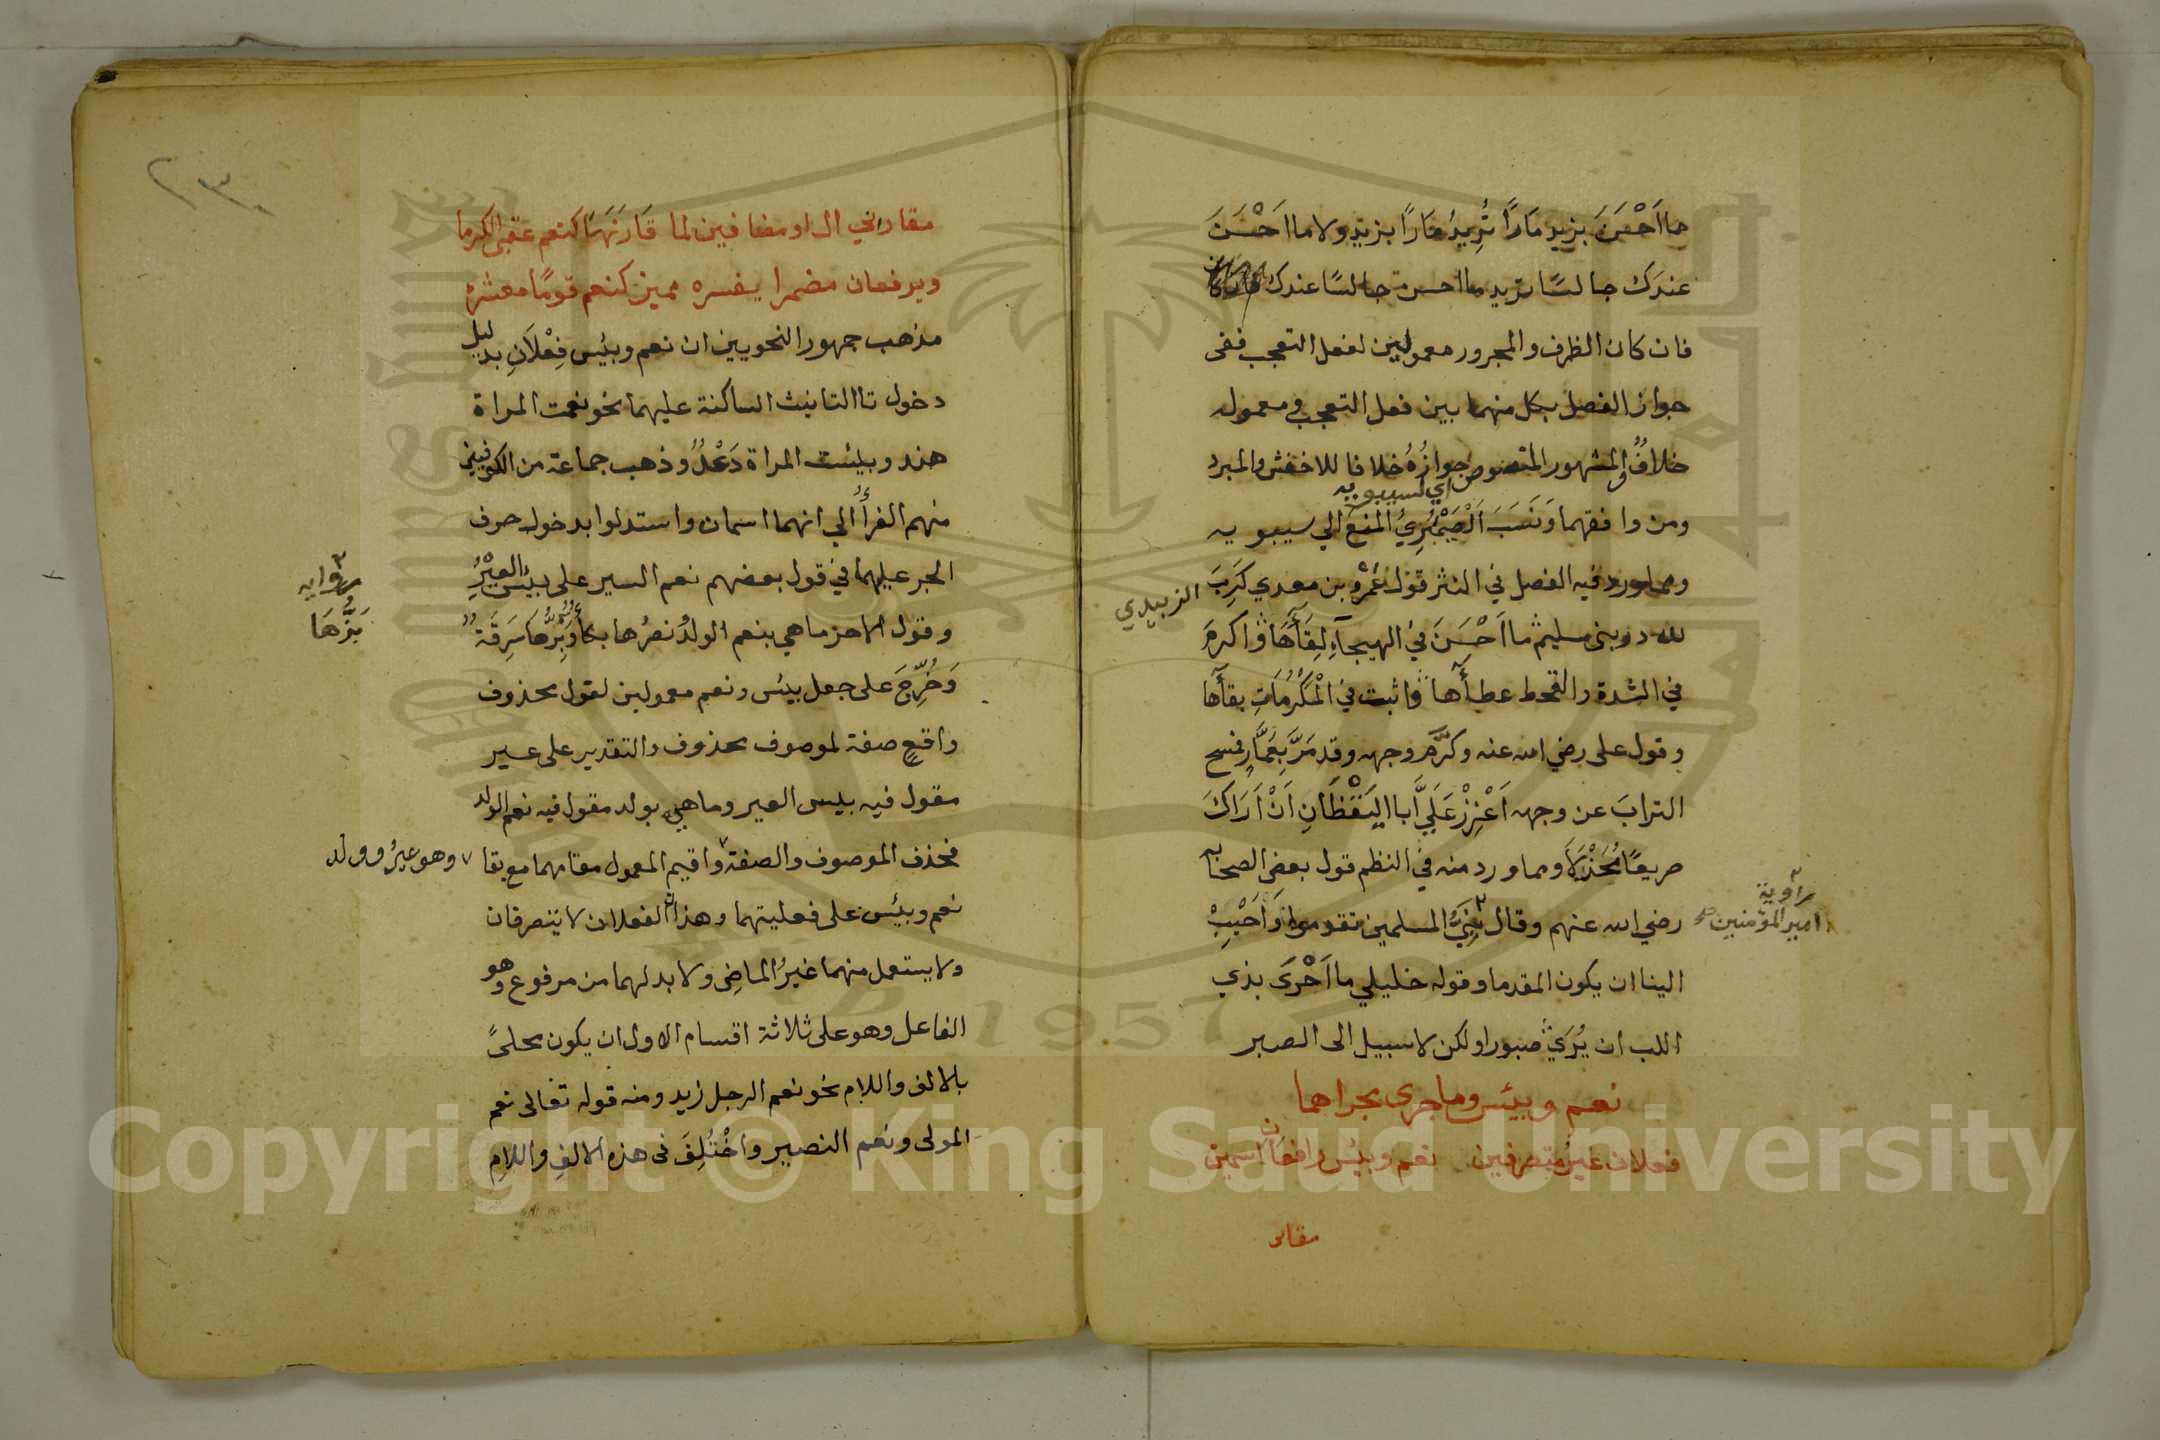 ما اَحْسَنَ بزيد مَارًّا تُرِيدُ مَارًّا بزيد ولا ما اَحْسَنَ
عندَك جالسًا تريد ما احسن جالسًا عندك
فان كان الظرف والمجرور معمولين لفعل التعجب ففى
جواز الفصل بكل منهما بين فعل التعجب ومعموله
خلافٌ والمشهور المنصوص جوازُهُ خلافا للاخفش والمبرد
اي لسيبويه
ومن وافقهما وَنَسَبَ الصَّيْمَرِيُّ المنعَ الي سيبويه
ومما ورد فيه الفصل في النثر قول عَمْرو بن معدي كَرِبَ
الزبيدي
لله در بنى سليم ما اَحْسَنَ في الهيجآءِ لِقَآَهَا واكرمَ
في الشدة والقحط عطآَها واثبت في الْمَكْرُمَاتِ بقآَها
وقول على رضي الله عنه وكرَّم وجهه وقد مَرَّ بِعَمَّارٍ فمسح
الترابَ عن وجهه اَعْزِزْ عَلَيَّ ابا اليَقْظَانِ اَنْ اَرَاكَ
صريعًا مُجَدَّلًا ومما ورد منه في النظم قول بعض الصحابه
رضي الله عنهم وقال نَبِيُّ المسلمين تقدموا وَاَحْبِبْ
رواية
امير المؤمنين صح
الينا ان يكون المقدما وقوله خليلي ما اَحْرَى بذي
اللب ان يُرَي صبورا ولكن لا سبيل الى الصبر
نعم وبيئس وما جرى مجراهما
فعلان غيرُ متصرفين نعم وبيئس رافعان اسمين
مقار
٢٣٠
مقارني ال او مضافين لما قَارَنَهَا كنعم عقبى الكرما
ويرفعان مضمرا يفسره مميز كنعم قومًا معشره
مذهب جمهور النحويين ان نعم وبيئس فِعْلَانِ بدليل
دخول تا التانيث الساكنة عليهما نحو نعمت المراة
هند وبيئست المراة دَعْدٌ وذهب جماعة من الكوفيين
منهم الفرأُ الي انهما اسمان واستدلوا بدخول حرف
الجر عليهما في قول بعضهم نعم السير على بيئس العيْرُ
وقول الاخر ما هي بنعم الولدُ نصرُها بكأ وَبِرُّها سَرِقَةٌ
رواية
بَرُّهَا
وَخُرِّجَ على جعل بيئس ونعم معمولين لقول محذوف
واقعٍ صفة لموصوف محذوف والتقدير على عير
مقول فيه بيئس العير وما هي بولد مقول فيه نعم الولد
فحذف الموصوف والصفة واقيم المعمول مقامهما مع بقا
وهو عيرٌ وولد
نعم وبيئس على فعليتهما وهذان الفعلان لا يتصرفان
ولا يستعمل منهما غيرُ الماضِى ولا بد لهما من مرفوع وهو
الفاعل وهو على ثلاثة اقسام الاول ان يكون محلىً
بالالف واللام نحو نعم الرجل زيد ومنه قوله تعالى نعم
المولى ونعم النصير واخْتُلِفَ فى هذه الالف واللام
Copyright © King Saud University
1957